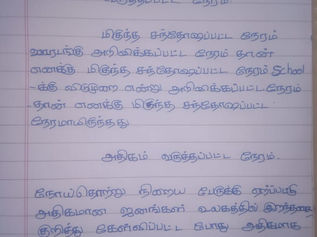 மிகுந்த சந்தோஷப்பட்ட நேரம்
ஊரடங்கு அறிவிக்கப்பட்ட நேரம் தான்
எனக்கு மிகுந்த சந்தோஷப்பட்ட நேரம் School
-க்கு விடுமுறை என்று அறிவிக்கப்பட்ட நேரம்
-தான் எனக்கு மிகுந்த சந்தோஷப்பட்ட
நேரமாயிருந்தது
அதிகம் வருத்தப்பட்ட நேரம்.
நோய்தொற்று நிறைய பேருக்கு ஏற்பட்டு
அதிகமான ஜனங்கள் உலகத்தில் இறந்ததை
குறித்து கேள்விப்பட்ட போது அதிகமாக